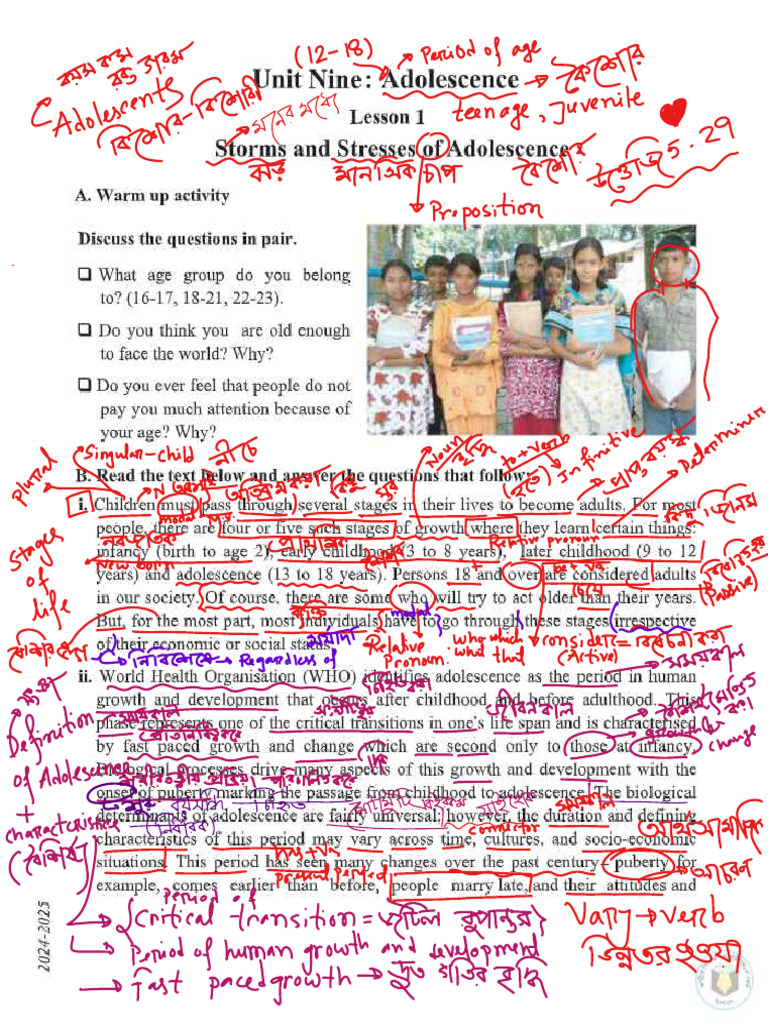 বয়স কম
(12-18)
Period of age
Unit Nine: Adolescence
কৈশোর
Adolescents
কিশোর-কিশোরী
Lesson 1
teenage, Juvenite
মনের মধ্যে
Storms and Stresses of Adolescence
5.29
ঝড়
মানসিক চাপ
কৈশোর
A. Warm up activity
Preposition
Discuss the questions in pair.
❑ What age group do you belong
to? (16-17, 18-21, 22-23).
❑ Do you think you are old enough
to face the world? Why?
❑ Do you ever feel that people do not
pay you much attention because of
your age? Why?
Singular-child
নীচে
Noun
to+verb
Infinitive
প্রাপ্ত বয়স্ক
Determiner
plural
B. Read the text below and answer the questions that follow:
i. Children must pass through several stages in their lives to become adults. For most
people, there are four or five such stages of growth where they learn certain things:
modal
Relative pronoun
infancy (birth to age 2), early childhood (3 to 8 years), later childhood (9 to 12
New born
years) and adolescence (13 to 18 years). Persons 18 and over are considered adults
Stages
of
life
in our society. Of course, there are some who will try to act older than their years.
(Passive)
ব্যক্তি
modal
But, for the most part, most individuals have to go through these stages irrespective
of their economic or social status.
মর্যাদা
নির্বিশেষে → Regardless of
Relative
Pronoun:
who which
what that
consider = বিবেচনা করা
(Active)
ii. World Health Organisation (WHO) identifies adolescence as the period in human
সময়কাল
growth and development that occurs after childhood and before adulthood. This
Definition
of Adolescence
+
characteristics
(বৈশিষ্ট্য)
phase represents one of the critical transitions in one's life span and is characterised
জীবনকাল
by fast paced growth and change which are second only to those at infancy.
growth
change
Biological processes drive many aspects of this growth and development with the
onset of puberty marking the passage from childhood to adolescence. The biological
বয়ঃসন্ধি
চিহ্নিত
সময়কাল
determinants of adolescence are fairly universal; however, the duration and defining
connector
characteristics of this period may vary across time, cultures, and socio-economic
আর্থসামাজিক
situations. This period has seen many changes over the past century puberty for
present perfect
আচরণ
example, comes earlier than before, people marry late, and their attitudes and
period of
Critical transition = জটিল রূপান্তর
Vary → verb
Period of human growth and development
ভিন্নতর হওয়া
Fast paced growth → দ্রুত গতির বৃদ্ধি
2024-2025